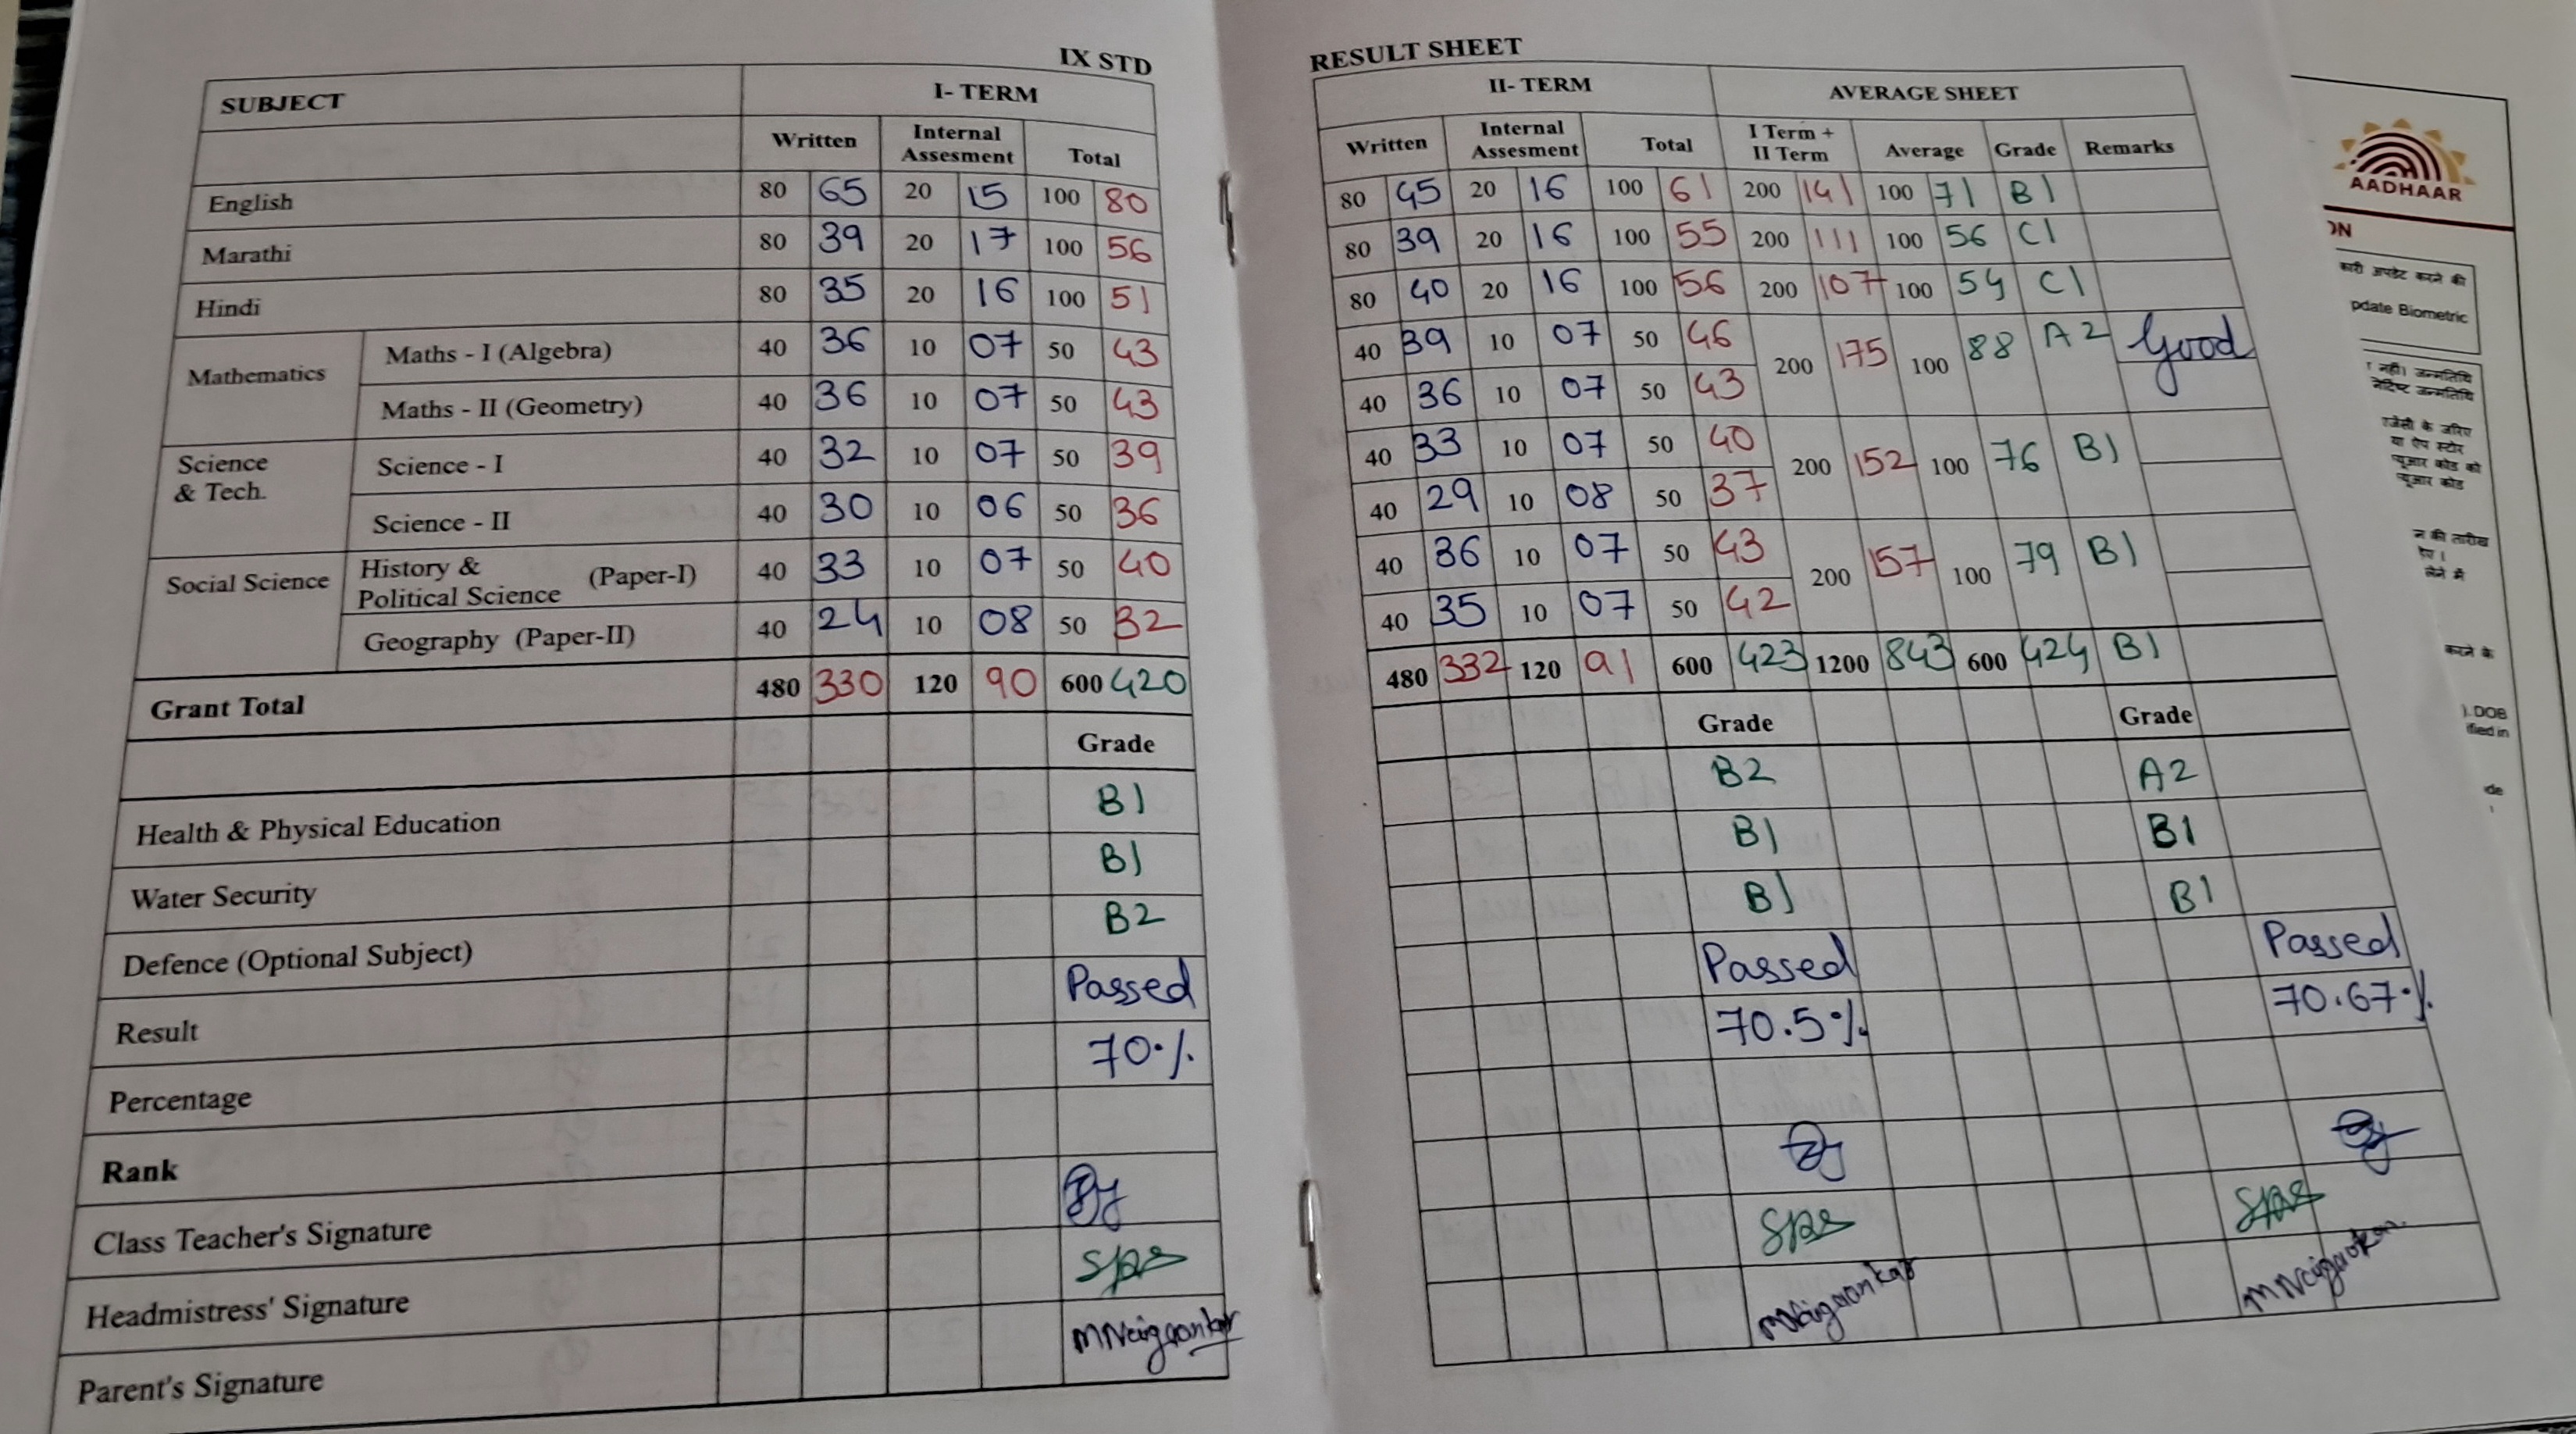 IX STD
SUBJECT I- TERM
Written Internal Assesment Total
English 80 65 20 15 100 80
Marathi 80 39 20 17 100 56
Hindi 80 35 20 16 100 51
Mathematics Maths - I (Algebra) 40 36 10 07 50 43
Maths - II (Geometry) 40 36 10 07 50 43
Science & Tech. Science - I 40 32 10 07 50 39
Science - II 40 30 10 06 50 36
Social Science History & Political Science (Paper-I) 40 33 10 07 50 40
Geography (Paper-II) 40 24 10 08 50 32
Grant Total 480 330 120 90 600 420
Grade
Health & Physical Education B1
Water Security B1
Defence (Optional Subject) B2
Result Passed
Percentage 70%
Rank
Class Teacher's Signature
Headmistress' Signature
Parent's Signature
RESULT SHEET
II- TERM AVERAGE SHEET
Written Internal Assesment Total I Term + II Term Average Grade Remarks
80 45 20 16 100 61 200 141 100 71 B1
80 39 20 16 100 55 200 111 100 56 C1
80 40 20 16 100 56 200 107 100 54 C1
40 39 10 07 50 46 200 175 100 88 A2 Good
40 36 10 07 50 43
40 33 10 07 50 40 200 152 100 76 B1
40 29 10 08 50 37
40 36 10 07 50 43 200 157 100 79 B1
40 35 10 07 50 42
480 332 120 91 600 423 1200 843 600 424 B1
Grade Grade
B2 A2
B1 B1
B1 B1
Passed Passed
70.5% 70.67%
AADHAAR
ON
कारी अपडेट करने की
pdate Biometric
नहीं। जन्मतिथि
जन्मतिथि
के जरिए
या ऐप स्टोर
कोड को
कोड
की तारीख
लेने में
करने के
). DOB
ified in
de